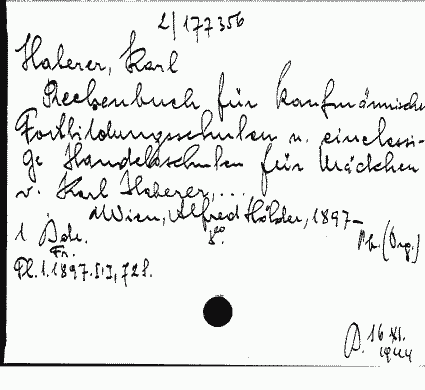 2/177356
Haberer, Karl
Rechenbuch für kaufmännische
Fortbildungsschulen u. einclassi-
ge Handelsschulen für Mädchen
v. Karl Haberer,...
Wien, Alfred Hölder, 1897-
1 Bde. 8°.
Fr.
Pl.1.1897.S.I,728.
16 XI.
1944